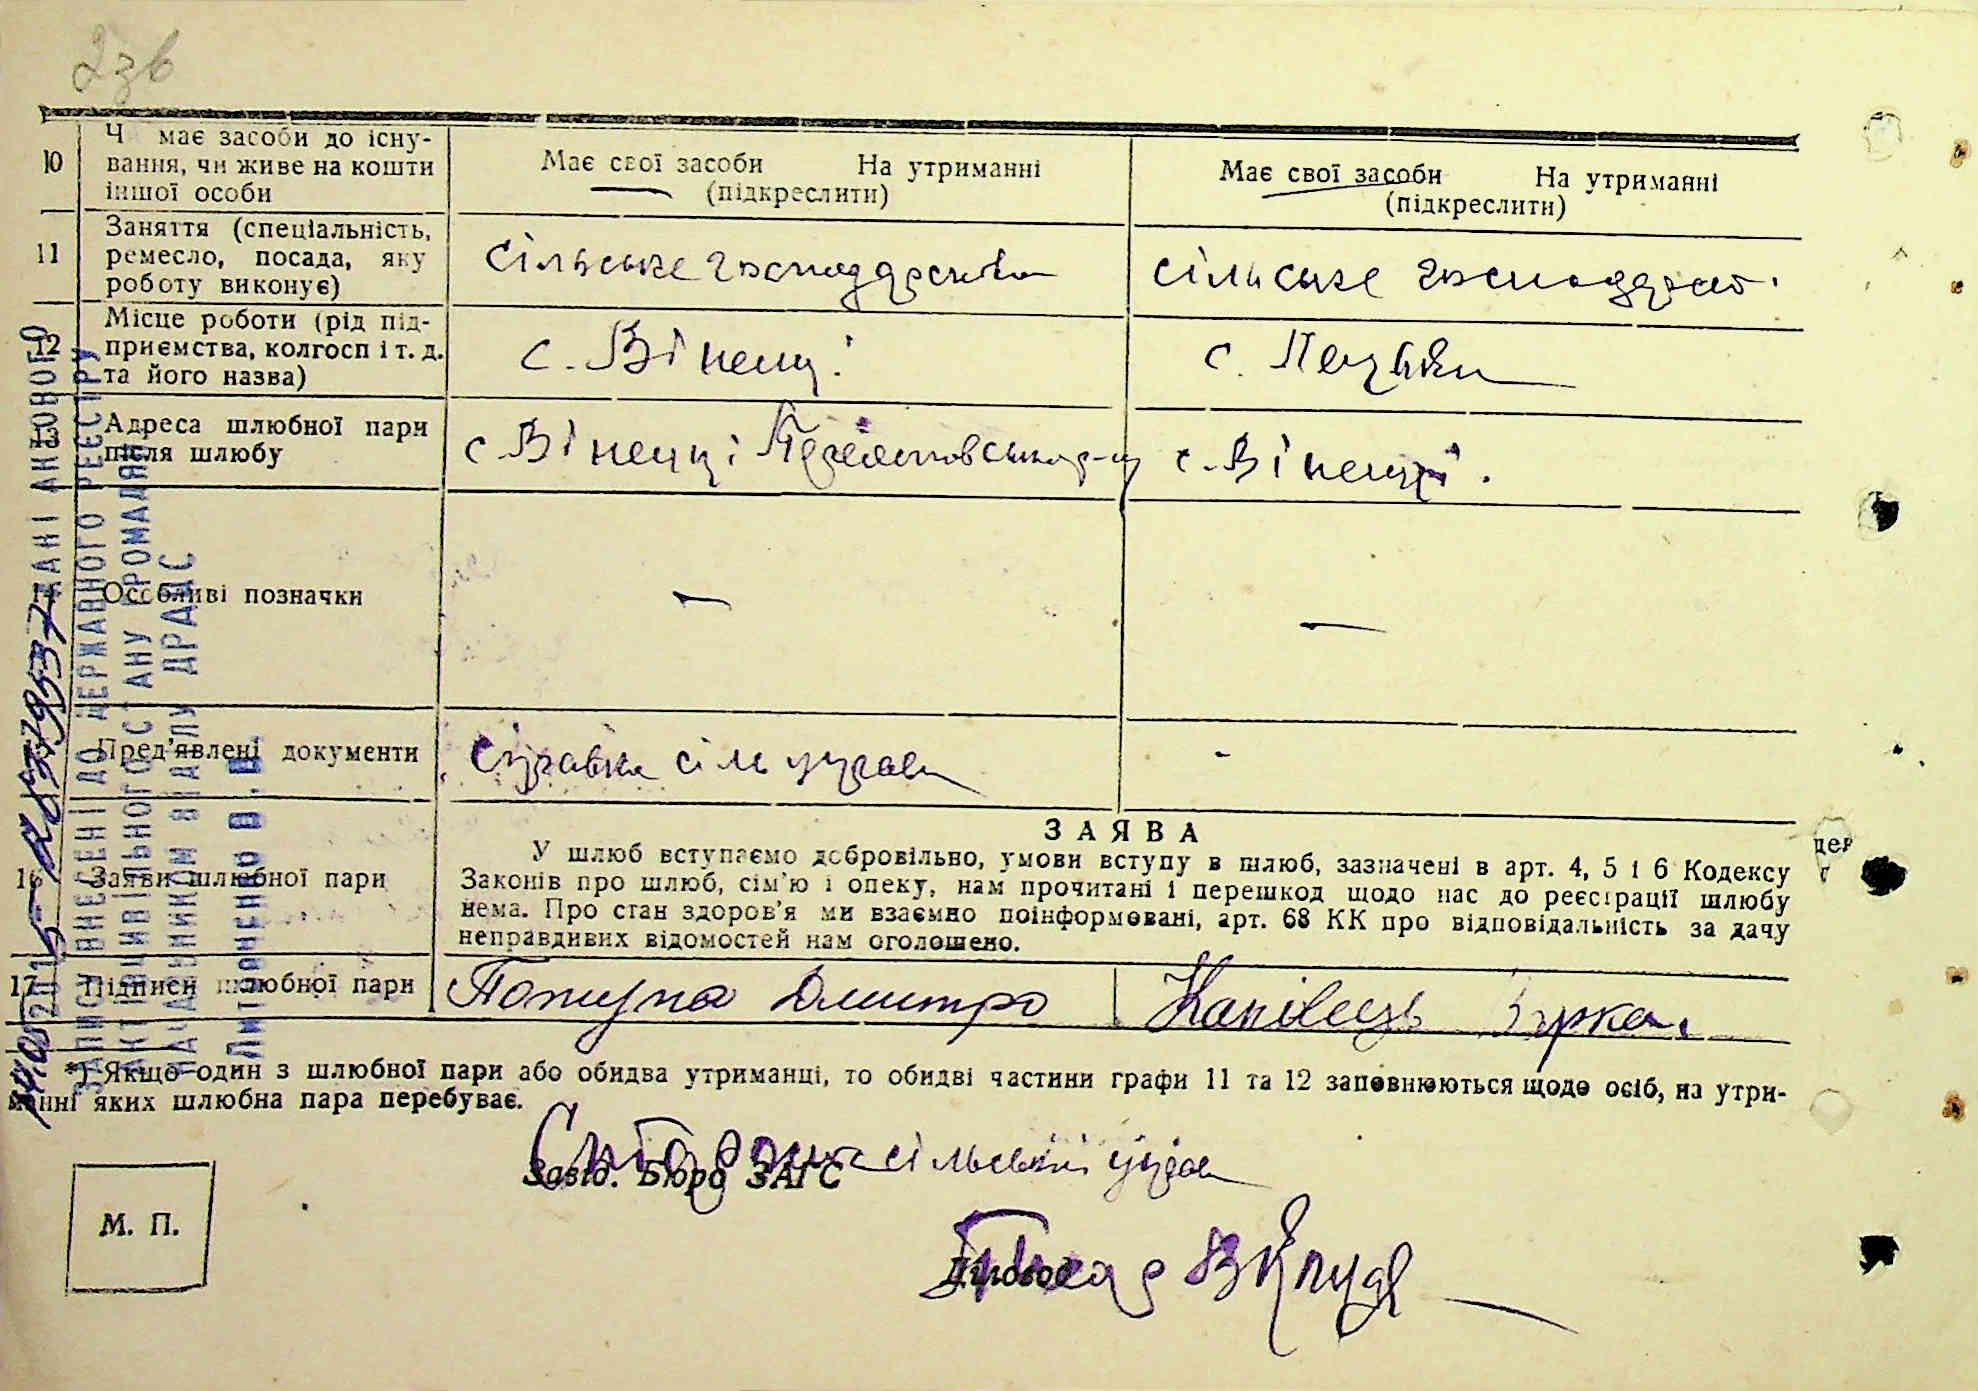 2зв
10 Ч має засоби до існу-
вання, чи живе на кошти
іншої особи
Має свої засоби На утриманні
(підкреслити)
Має свої засоби На утриманні
(підкреслити)
11 Заняття (спеціальність,
ремесло, посада, яку
роботу виконує)
сільське господарство
сільське господарст.
12 Місце роботи (рід під-
приємства, колгосп і т. д.
та його назва)
с. Вінец.
с.
13 Адреса шлюбної пари
після шлюбу
с. Вінецці
с. Вінецці.
14 Особливі позначки
—
—
Пред'явлені документи
Справка сіль управи
-
16 Заяви шлюбної пари
ЗАЯВА
У шлюб вступаємо добровільно, умови вступу в шлюб, зазначені в арт. 4, 5 і 6 Кодексу
Законів про шлюб, сім'ю і опеку, нам прочитані і перешкод щодо нас до реєстрації шлюбу
нема. Про стан здоров'я ми взаємно поінформовані, арт. 68 КК про відповідальність за дачу
неправдивих відомостей нам оголошено.
17 Підписи шлюбної пари
Потупа Дмитро
Капівець
*) Якщо один з шлюбної пари або обидва утриманці, то обидві частини графи 11 та 12 заповнюються щодо осіб, на утри-
манні яких шлюбна пара перебуває.
сільської управи
Завід. Бюро ЗАГС
М. П.
Діловод
ДАНІ АКТОВОГО
ЗАПИСУ ВНЕСЕНІ ДО ДЕРЖАВНОГО РЕЄСТРУ
АКТІВ ЦИВІЛЬНОГО СТАНУ ГРОМАДЯН
НАЧАЛЬНИКОМ ВІДДІЛУ ДРАЦС